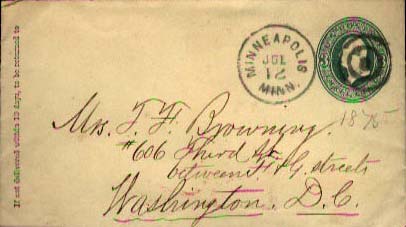 If not delivered within 10 days, to be returned to
MINNEAPOLIS
JUL
12
MINN.
1875
Mrs. T. F. Browning.
#606 Third St.
between F & G. streets
Washington, D.C.